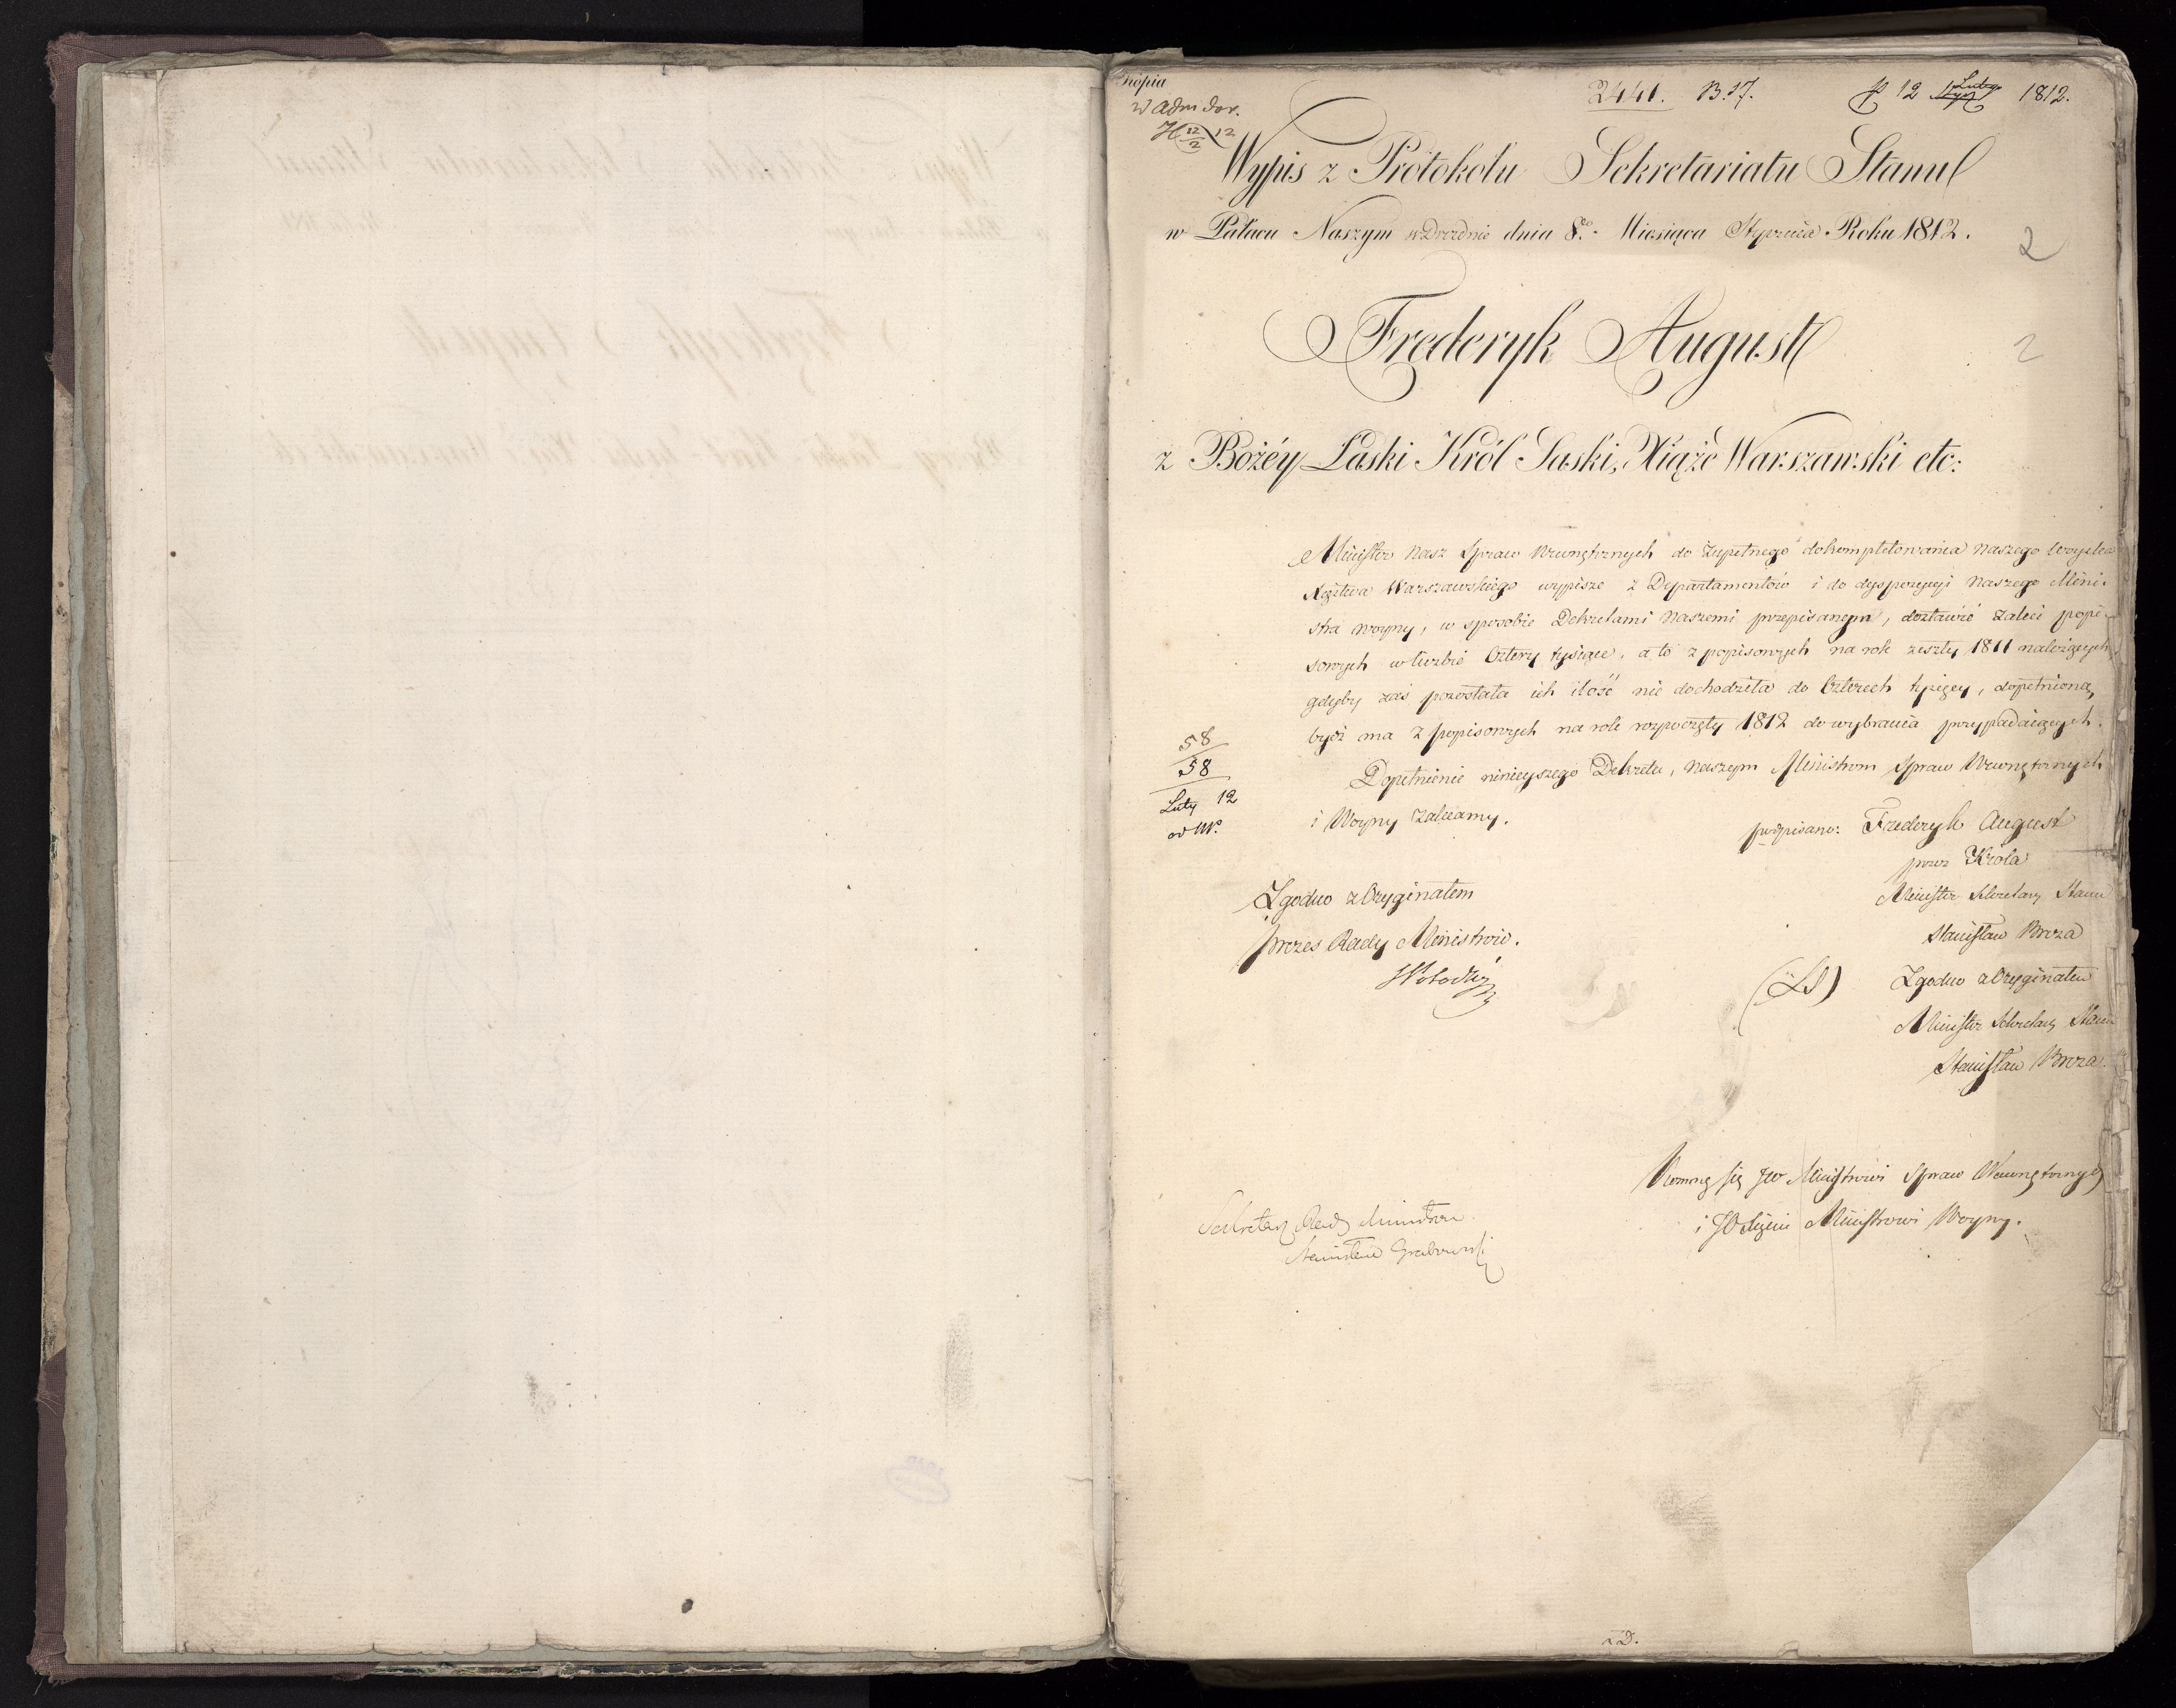 Kopia
w Adm dov.
2441. B.17.
12 Lutego 1812.
12
2
12
Wypis z Protokołu Sekretariatu Stanu
w Pałacu Naszym w Dreznie dnia 8go Miesiąca Stycznia Roku 1812.
2
Frederyk August
2
z Bożéy Łaski Król Saski, Xiążę Warszawski etc:
Minister Nasz Spraw Wewnętrznych do zupełnego dokompletowania naszego woyska
Xięstwa Warszawskiego wypisze z Departamentów i do dyspozycyi Naszego Mini-
stra Woyny, w sposobie Dekretami Naszemi przepisanym, dostawić zaleci popi-
sowych w liczbie Cztery tysiące, a to z popisowych na rok zeszły 1811 należących,
gdyby zaś pozostała ich ilość nie dochodziła do Czterech tysięcy, dopełnioną
bydź ma z popisowych na rok rozpoczęty 1812 do wybrania przypadaiących.
Dopełnienie ninieyszego Dekretu, Naszym Ministrom Spraw Wewnętrznych
i Woyny zalecamy.
58
58
Luty 12
od M.
podpisano: Frederyk August
przez Króla
Minister Sekretarz Stanu
Stanisław Breza
Zgodno z Oryginałem
Prezes Rady Ministrów.
(LS) Zgodno z Oryginałem
Minister Sekretarz Stanu
Stanisław Breza
Sekretarz Rady Ministrów
Stanisław Grabowski
JW Ministrowi Spraw Wewnętrznych
i JO Xięciu Ministrowi Woyny.